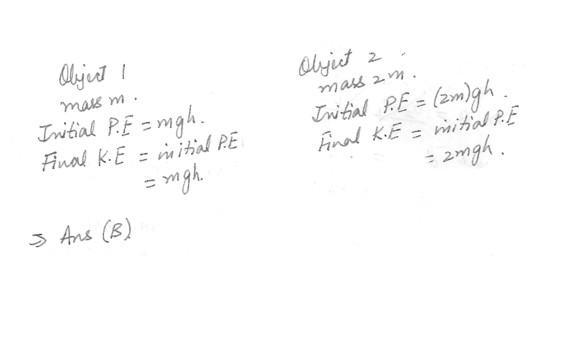 Object 1
mass m.
Initial P.E = mgh.
Final K.E = initial P.E
= mgh.
Object 2
mass 2m.
Initial P.E = (2m)gh.
Final K.E = initial P.E
= 2mgh.
⇒ Ans (B)